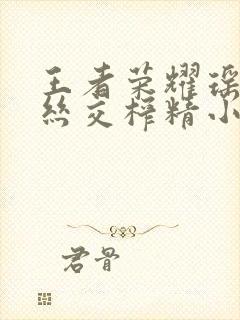 王者荣耀瑶
丝交榨精小
君骨